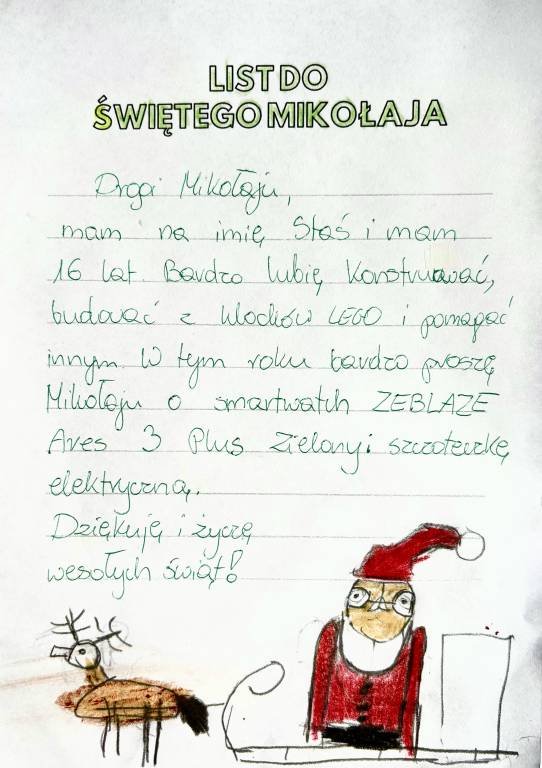 LIST DO
ŚWIĘTEGO MIKOŁAJA
Drogi Mikołaju,
mam na imię Staś i mam
16 lat. Bardzo lubię konstruować,
budować z klocków LEGO i pomagać
innym. W tym roku bardzo proszę
Mikołaju o smartwatch ZEBLAZE
Ares 3 Plus zielony i szczoteczkę
elektryczną.
Dziękuję i życzę
wesołych świąt!